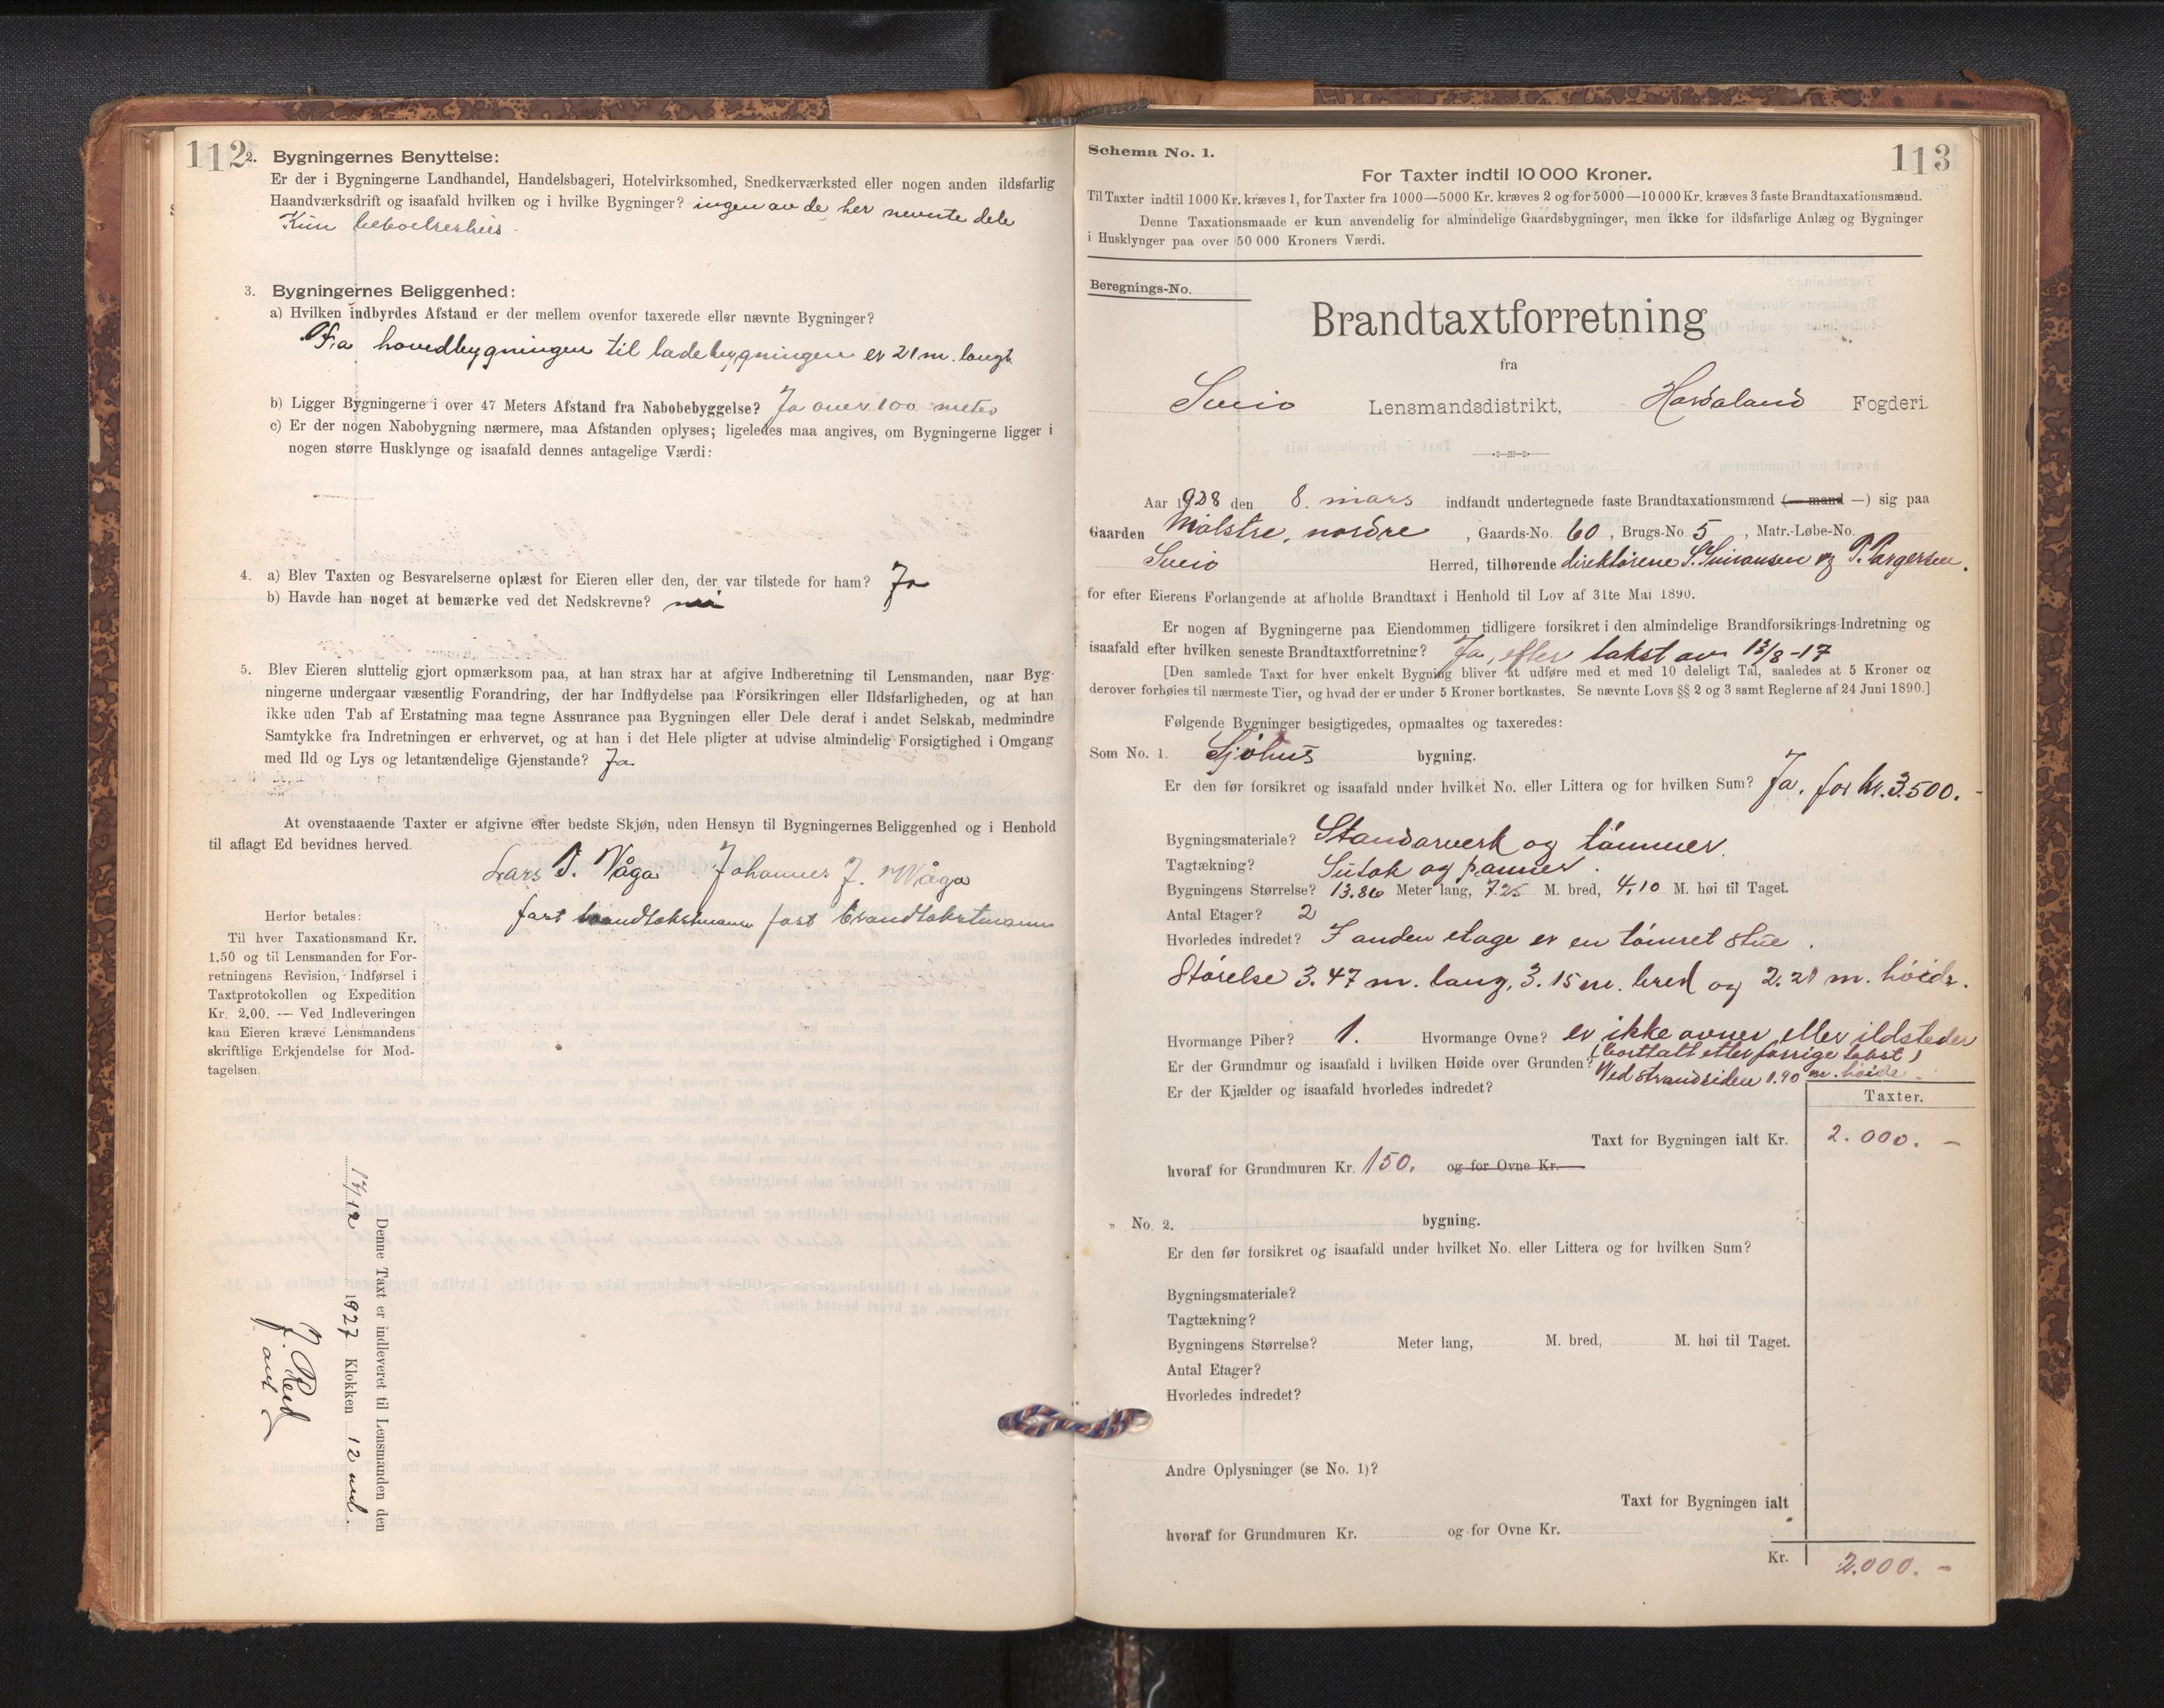 112
2. Bygningernes Benyttelse:
Er der i Bygningerne Landhandel, Handelsbageri, Hotelvirksomhed, Snedkerværksted eller nogen anden ildsfarlig
Haandværksdrift og isaafald hvilken og i hvilke Bygninger? ingen av de her nevnte dele
Kun beboelseshus.
3. Bygningernes Beliggenhed:
a) Hvilken indbyrdes Afstand er der mellem ovenfor taxerede eller nævnte Bygninger?
Fra hovedbygningen til ladebygningen er 21 m. langt
b) Ligger Bygningerne i over 47 Meters Afstand fra Nabobebyggelse? Ja over 100 meter
c) Er der nogen Nabobygning nærmere, maa Afstanden oplyses; ligeledes maa angives, om Bygningerne ligger i
nogen større Husklynge og isaafald dennes antagelige Værdi:
4. a) Blev Taxten og Besvarelserne oplæst for Eieren eller den, der var tilstede for ham? Ja
b) Havde han noget at bemærke ved det Nedskrevne? nei
5. Blev Eieren sluttelig gjort opmærksom paa, at han strax har at afgive Indberetning til Lensmanden, naar Byg-
ningerne undergaar væsentlig Forandring, der har Indflydelse paa Forsikringen eller Ildsfarligheden, og at han
ikke uden Tab af Erstatning maa tegne Assurance paa Bygningen eller Dele deraf i andet Selskab, medmindre
Samtykke fra Indretningen er erhvervet, og at han i det Hele pligter at udvise almindelig Forsigtighed i Omgang
med Ild og Lys og letantændelige Gjenstande? Ja
At ovenstaaende Taxter er afgivne efter bedste Skjøn, uden Hensyn til Bygningernes Beliggenhed og i Henhold
til aflagt Ed bevidnes herved.
Lars T. Våga Johannes J. Våga
fast brandtakstmann fast brandtakstmann
Herfor betales:
Til hver Taxationsmand Kr.
1.50 og til Lensmanden for For-
retningens Revision, Indførsel i
Taxtprotokollen og Expedition
Kr. 2.00. — Ved Indleveringen
kan Eieren kræve Lensmandens
skriftlige Erkjendelse for Mod-
tagelsen.
Denne Taxt er indleveret til Lensmanden den
17/12 1927 Klokken 12 md.
J. Reid
113
Schema No. 1.
For Taxter indtil 10 000 Kroner.
Til Taxter indtil 1000 Kr. kræves 1, for Taxter fra 1000—5000 Kr. kræves 2 og for 5000—10 000 Kr. kræves 3 faste Brandtaxationsmænd.
Denne Taxationsmaade er kun anvendelig for almindelige Gaardsbygninger, men ikke for ildsfarlige Anlæg og Bygninger
i Husklynger paa over 50 000 Kroners Værdi.
Beregnings-No.
Brandtaxtforretning
fra
Sveio Lensmandsdistrikt, Hordaland Fogderi.
Aar 1928 den 8. mars indfandt undertegnede faste Brandtaxationsmænd (— mand —) sig paa
Gaarden Mølstre, nordre, Gaards-No. 60, Brugs-No. 5, Matr.-Løbe-No.
Sveio Herred, tilhørende direktørene S. Simonsen og P. Torgersen.
for efter Eierens Forlangende at afholde Brandtaxt i Henhold til Lov af 31te Mai 1890.
Er nogen af Bygningerne paa Eiendommen tidligere forsikret i den almindelige Brandforsikrings-Indretning og
isaafald efter hvilken seneste Brandtaxtforretning? Ja, efter takst av 13/8-17
[Den samlede Taxt for hver enkelt Bygning bliver at udføre med et med 10 deleligt Tal, saaledes at 5 Kroner og
derover forhøies til nærmeste Tier, og hvad der er under 5 Kroner bortkastes. Se nævnte Lovs §§ 2 og 3 samt Reglerne af 24 Juni 1890.]
Følgende Bygninger besigtigedes, opmaaltes og taxeredes:
Som No. 1. Sjøhus bygning.
Er den før forsikret og isaafald under hvilket No. eller Littera og for hvilken Sum? Ja, for kr. 3.500.-
Bygningsmateriale? Standarverk og tømmer.
Tagtækning? Sutak og panner.
Bygningens Størrelse? 13.86 Meter lang, 7.25 M. bred, 4.10 M. høi til Taget.
Antal Etager? 2
Hvorledes indredet? I anden etage er en tømret stue.
Størelse 3.47 m. lang, 3.15 m. bred og 2.21 m. høide.
Hvormange Piber? 1. Hvormange Ovne? er ikke ovner eller ildsteder
(borttatt etter forrige takst)
Er der Grundmur og isaafald i hvilken Høide over Grunden? Ved strandsiden 1.90 m. høide.
Er der Kjælder og isaafald hvorledes indredet?
Taxter.
Taxt for Bygningen ialt Kr. 2.000.-
hvoraf for Grundmuren Kr. 150. og for Ovne Kr.
„ No. 2. bygning.
Er den før forsikret og isaafald under hvilket No. eller Littera og for hvilken Sum?
Bygningsmateriale?
Tagtækning?
Bygningens Størrelse? Meter lang, M. bred, M. høi til Taget.
Antal Etager?
Hvorledes indredet?
Andre Oplysninger (se No. 1)?
Taxt for Bygningen ialt
hvoraf for Grundmuren Kr. og for Ovne Kr.
Kr. 2.000.-